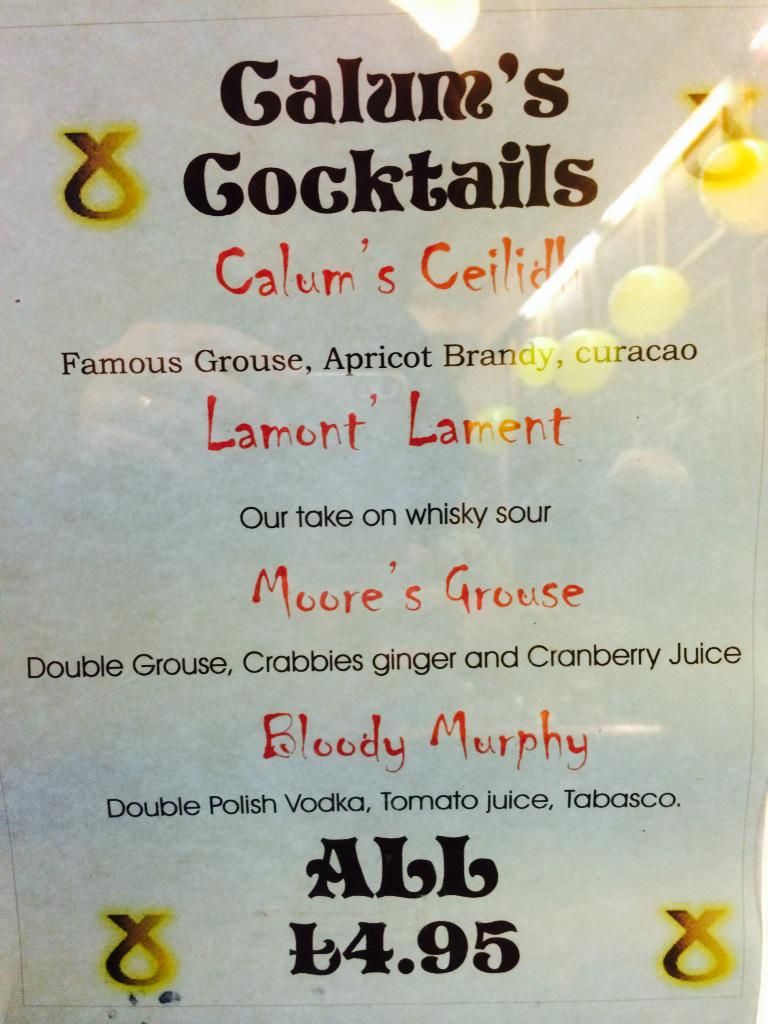 Calum's
Cocktails
Calum's Ceilidh
Famous Grouse, Apricot Brandy, curacao
Lamont' Lament
Our take on whisky sour
Moore's Grouse
Double Grouse, Crabbies ginger and Cranberry Juice
Bloody Murphy
Double Polish Vodka, Tomato juice, Tabasco.
ALL
£4.95